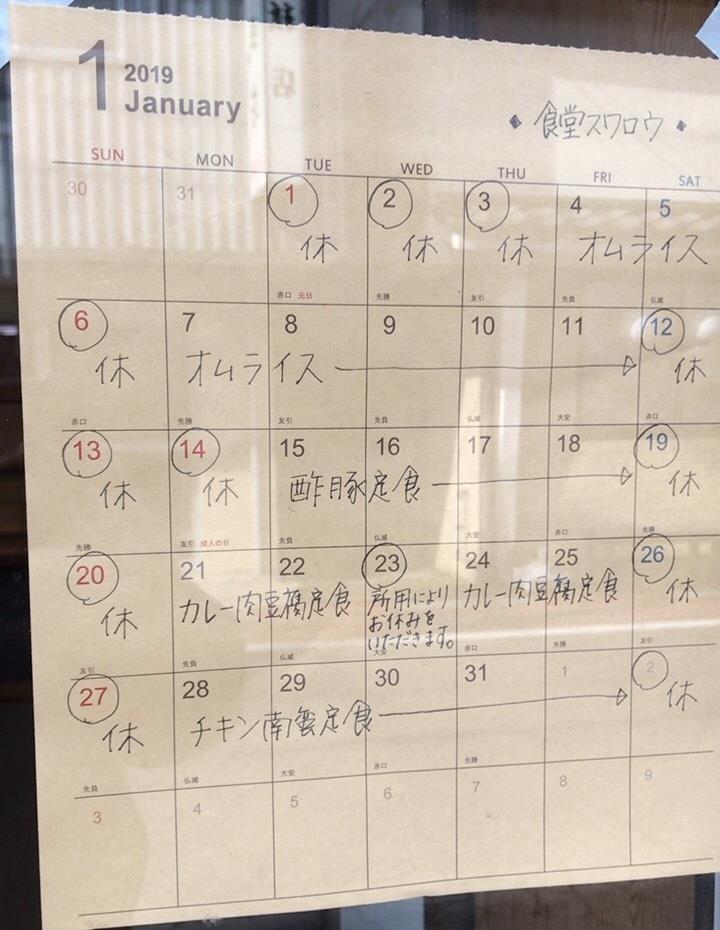 1
2019
January
◆ 食堂スワロウ ◆
SUN MON TUE WED THU FRI SAT
30 31 1 2 3 4 5
休 休 休 オムライス
赤口 元日 先勝 友引 先負 仏滅
6 7 8 9 10 11 12
休 オムライス 休
赤口 先勝 友引 先負 仏滅 大安 赤口
13 14 15 16 17 18 19
休 休 酢豚定食 休
先勝 友引 成人の日 先負 仏滅 大安 赤口 先勝
20 21 22 23 24 25 26
休 カレー肉豆腐定食 所用により カレー肉豆腐定食 休
お休みを
いただきます。
友引 先負 仏滅 大安 赤口 先勝 友引
27 28 29 30 31 1 2
休 チキン南蛮定食 休
先負 仏滅 大安 赤口 先勝
3 4 5 6 7 8 9